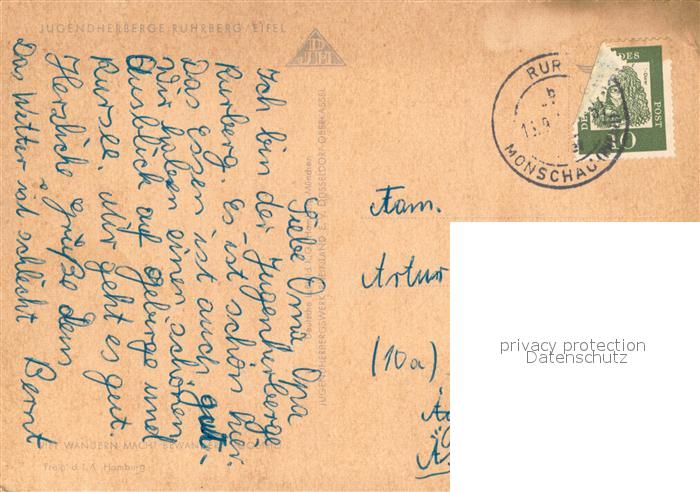 JUGENDHERBERGE RUHRBERG/EIFEL
DJH
Liebe Oma, Opa
Ich bin der Jugenherberge
Rurberg. Es ist schön hier.
Das Essen ist auch gut.
Wir haben einen schönen
Ausblick auf gebirge und
Rursee. Mir geht es gut.
Herzliche grüße dein
Das Wetter ist schlecht Bernt
JUGENDHERBERGSWERK
DÜSSELDORF-OBERKASSEL
München
WANDERN MACHT BEWANDERT
Hamburg
RUR
13.
MONSCHAU
POST
Fam.
Artur
(10a)
privacy protection
Datenschutz